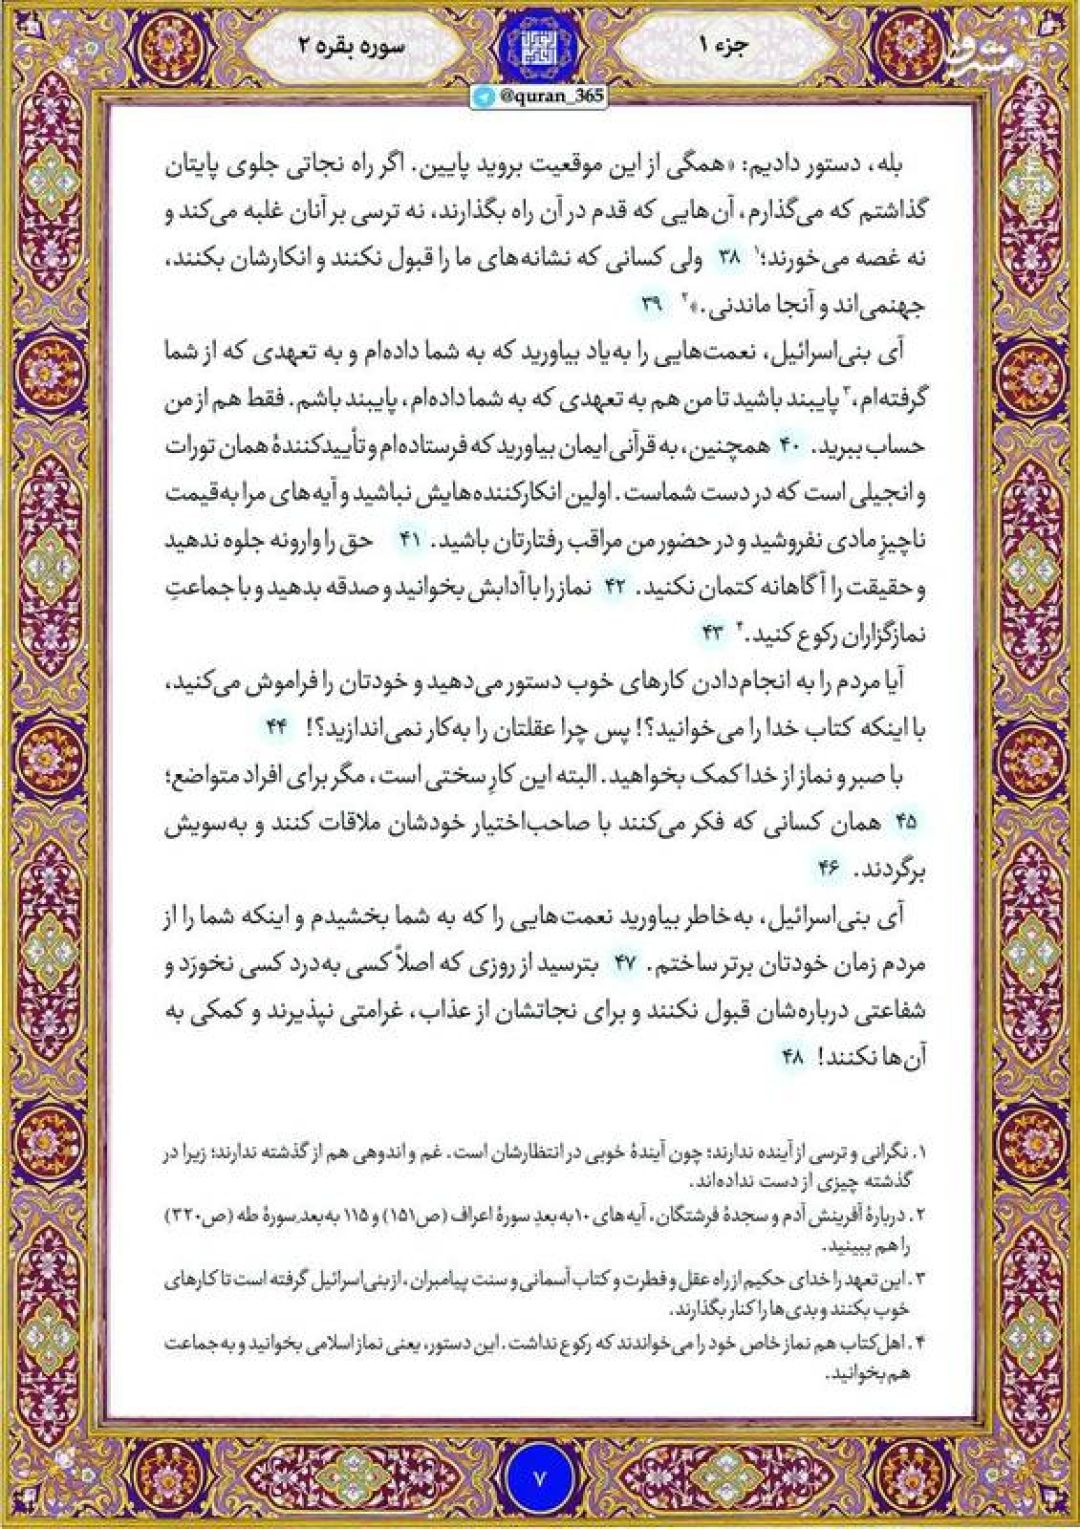 جزء ۱
سوره بقره ۲
@quran_365
بله، دستور دادیم: «همگی از این موقعیت بروید پایین. اگر راه نجاتی جلوی پایتان
گذاشتم که می‌گذارم، آن‌هایی که قدم در آن راه بگذارند، نه ترسی بر آنان غلبه می‌کند و
نه غصه می‌خورند؛۱ ۳۸ ولی کسانی که نشانه‌های ما را قبول نکنند و انکارشان بکنند،
جهنمی‌اند و آنجا ماندنی.»۲ ۳۹
آی بنی‌اسرائیل، نعمت‌هایی را به‌یاد بیاورید که به شما داده‌ام و به تعهدی که از شما
گرفته‌ام،۳ پایبند باشید تا من هم به تعهدی که به شما داده‌ام، پایبند باشم. فقط هم از من
حساب ببرید. ۴۰ همچنین، به قرآنی ایمان بیاورید که فرستاده‌ام و تأییدکنندهٔ همان تورات
و انجیلی است که در دست شماست. اولین انکارکننده‌هایش نباشید و آیه‌های مرا به‌قیمت
ناچیزِ مادی نفروشید و در حضور من مراقب رفتارتان باشید. ۴۱ حق را وارونه جلوه ندهید
و حقیقت را آگاهانه کتمان نکنید. ۴۲ نماز را با آدابش بخوانید و صدقه بدهید و با جماعتِ
نمازگزاران رکوع کنید.۴ ۴۳
آیا مردم را به انجام‌دادن کارهای خوب دستور می‌دهید و خودتان را فراموش می‌کنید،
با اینکه کتاب خدا را می‌خوانید؟! پس چرا عقلتان را به‌کار نمی‌اندازید؟! ۴۴
با صبر و نماز از خدا کمک بخواهید. البته این کارِ سختی است، مگر برای افراد متواضع؛
۴۵ همان کسانی که فکر می‌کنند با صاحب‌اختیار خودشان ملاقات کنند و به‌سویش
برگردند. ۴۶
آی بنی‌اسرائیل، به‌خاطر بیاورید نعمت‌هایی را که به شما بخشیدم و اینکه شما را از
مردم زمان خودتان برتر ساختم. ۴۷ بترسید از روزی که اصلاً کسی به‌درد کسی نخورَد و
شفاعتی درباره‌شان قبول نکنند و برای نجاتشان از عذاب، غرامتی نپذیرند و کمکی به
آن‌ها نکنند! ۴۸
۱. نگرانی و ترسی از آینده ندارند؛ چون آیندهٔ خوبی در انتظارشان است. غم و اندوهی هم از گذشته ندارند؛ زیرا در
گذشته چیزی از دست نداده‌اند.
۲. دربارهٔ آفرینش آدم و سجدهٔ فرشتگان، آیه‌های ۱۰ به‌بعدِ سورهٔ اعراف (ص۱۵۱) و ۱۱۵ به‌بعدِ سورهٔ طه (ص۳۲۰)
را هم ببینید.
۳. این تعهد را خدای حکیم از راه عقل و فطرت و کتاب آسمانی و سنت پیامبران، از بنی‌اسرائیل گرفته است تا کارهای
خوب بکنند و بدی‌ها را کنار بگذارند.
۴. اهل‌کتاب هم نماز خاص خود را می‌خواندند که رکوع نداشت. این دستور، یعنی نماز اسلامی بخوانید و به‌جماعت
هم بخوانید.
۷